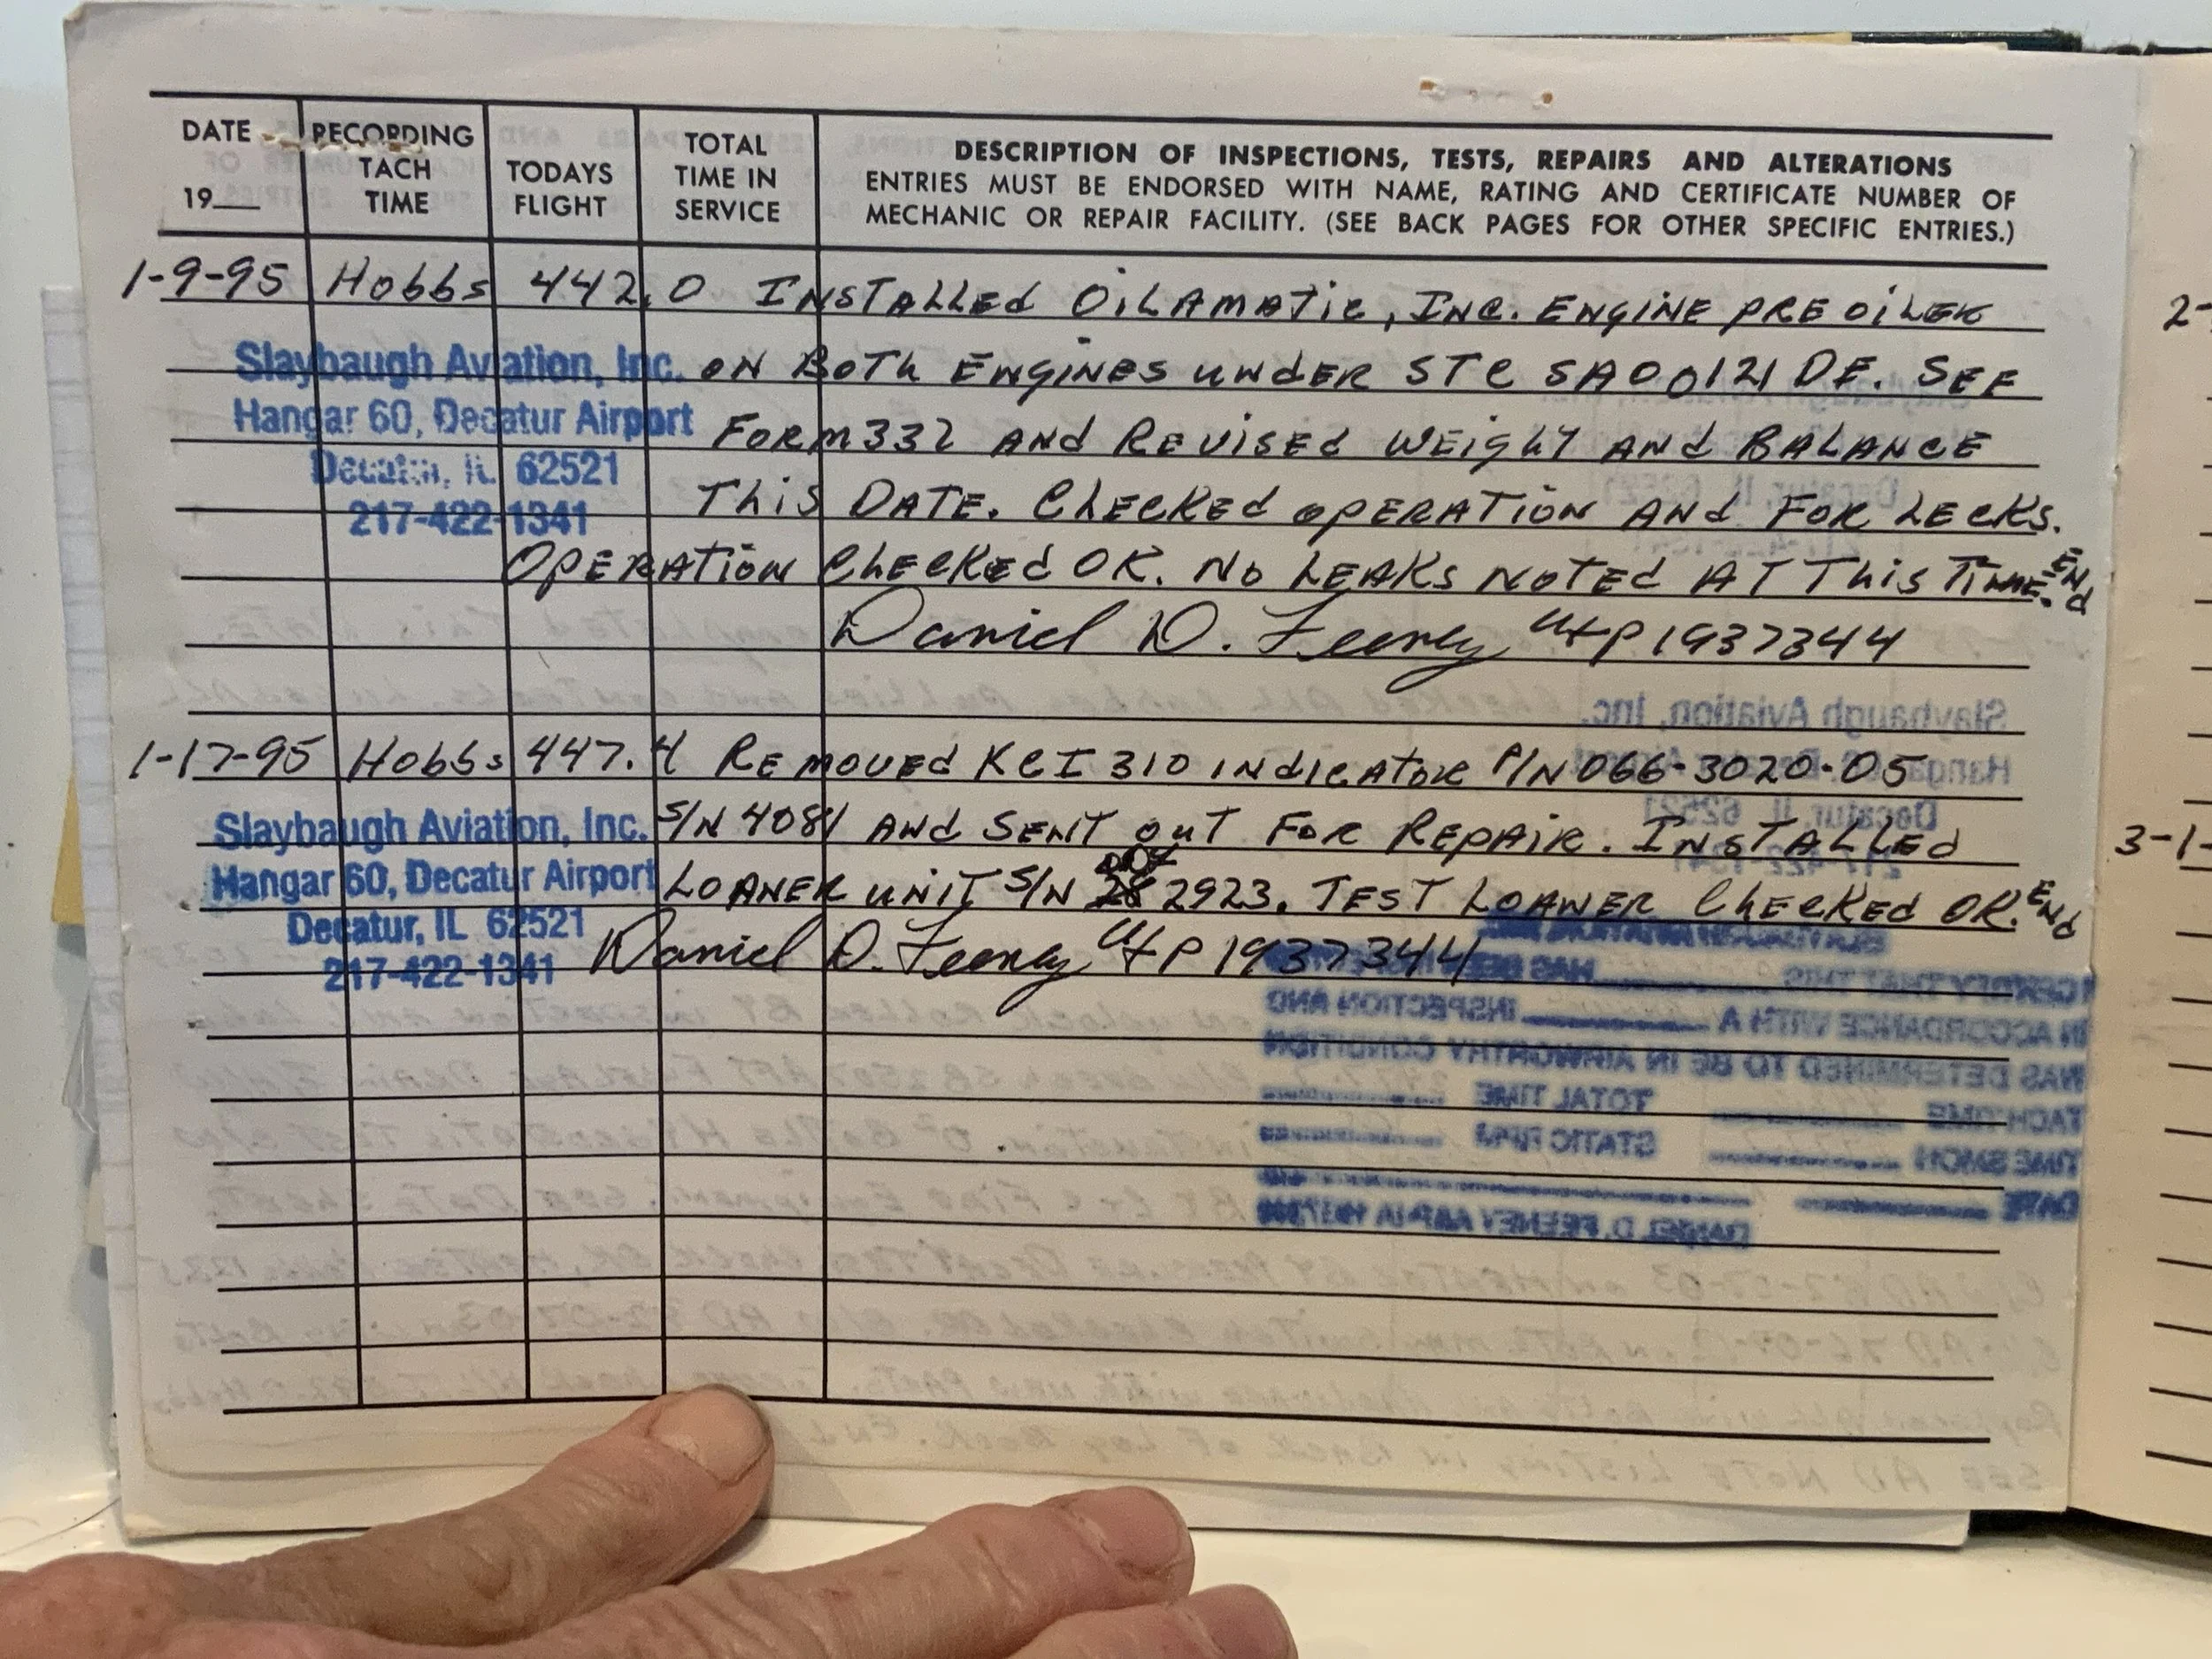 DATE
19__
RECORDING
TACH
TIME
TODAYS
FLIGHT
TOTAL
TIME IN
SERVICE
DESCRIPTION OF INSPECTIONS, TESTS, REPAIRS AND ALTERATIONS
ENTRIES MUST BE ENDORSED WITH NAME, RATING AND CERTIFICATE NUMBER OF
MECHANIC OR REPAIR FACILITY. (SEE BACK PAGES FOR OTHER SPECIFIC ENTRIES.)
1-9-95 Hobbs 442.0 INSTALLED OILAMATIC, INC. ENGINE PRE OILER
ON BOTH ENGINES UNDER STC SA00121DE. SEE
FORM 337 AND REVISED WEIGHT AND BALANCE
THIS DATE. CHECKED OPERATION AND FOR LECKS.
OPERATION CHECKED OK. NO LEAKS NOTED AT THIS TIME. END
Daniel D. Feeney A+P 1937344
Slaybaugh Aviation, Inc.
Hangar 60, Decatur Airport
Decatur, IL 62521
217-422-1341
1-17-95 Hobbs 447.4 REMOVED KCI 310 INDICATOR P/N 066-3020-05
S/N 4081 AND SENT OUT FOR REPAIR. INSTALLED
LOANER UNIT S/N 2923. TEST LOANER CHECKED OK. END
Daniel D. Feeney A+P 1937344
Slaybaugh Aviation, Inc.
Hangar 60, Decatur Airport
Decatur, IL 62521
217-422-1341
2-
3-1-